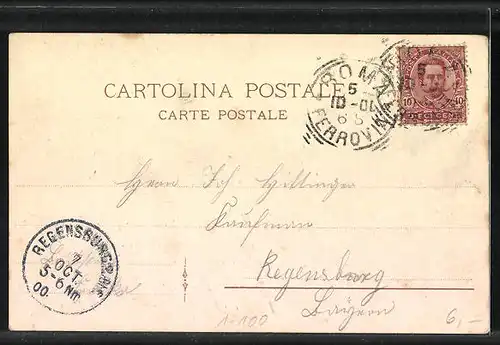 CARTOLINA POSTALE
CARTE POSTALE
ROMA
5
10-00
6 S
FERROVIA
10
10
Herrn Joh. Hillinger
Kaufman
Regensburg
Bayern
REGENSBURG
7
OCT
5-6 Nm
00.
1-100
6,-